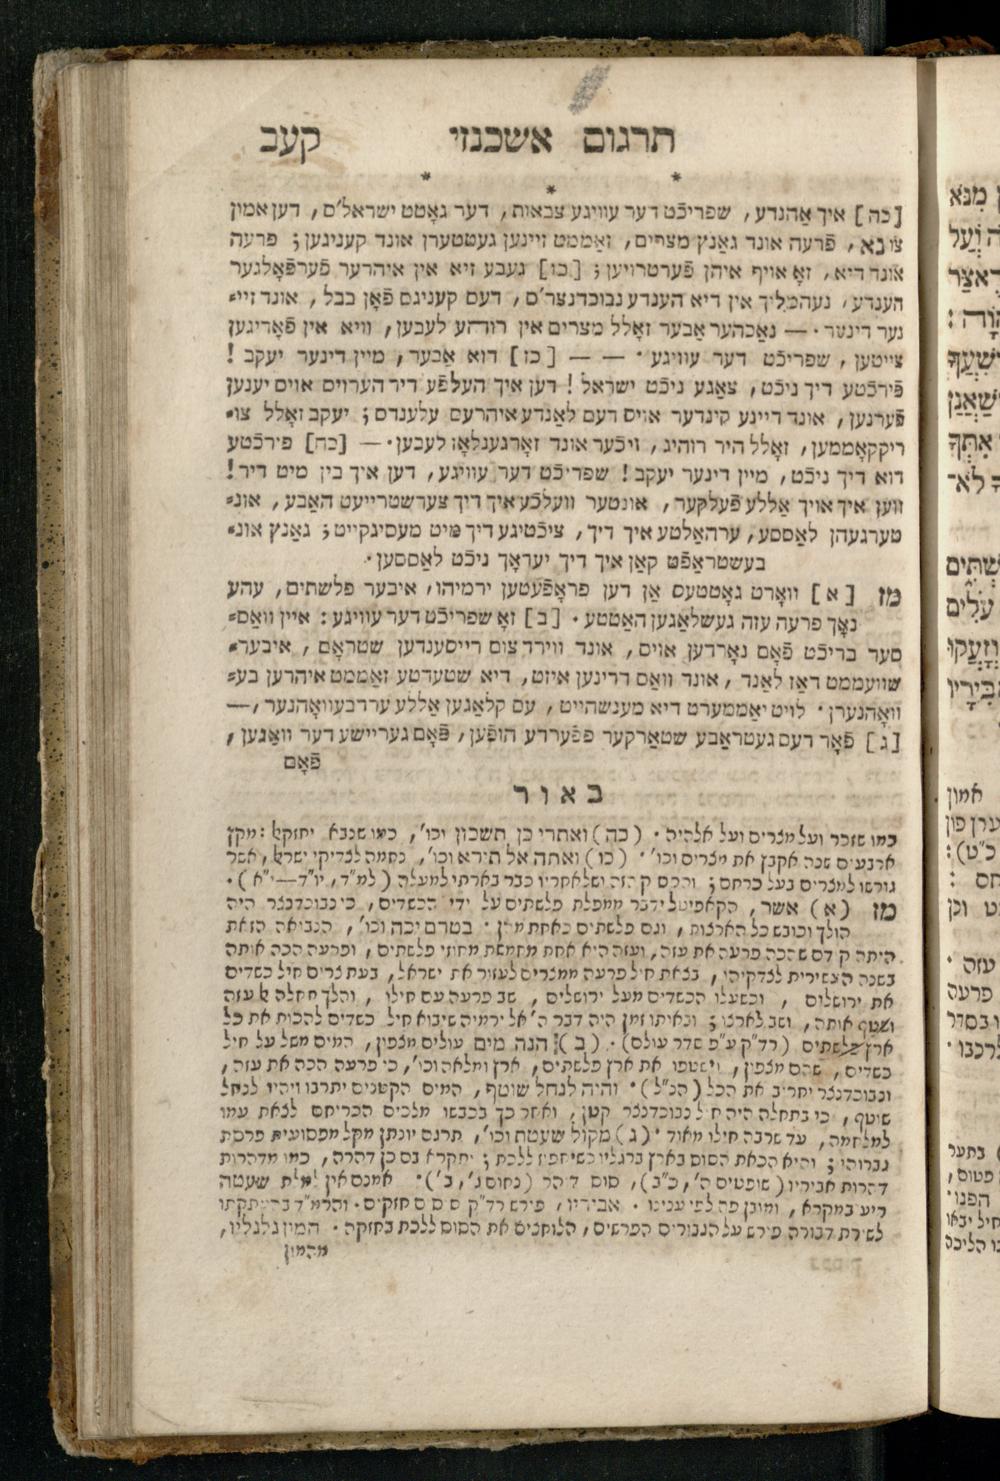 תרגום אשכנזי קעב
[כה] איך אַהנדע, שפריכֿט דער עוויגע צבאות, דער גאָטט ישראל'ס, דען אמון
צו נא, פֿרעה אונד גאַנץ מצרים, זאַממט זיינען געטטערן אונד קעניגען; פרעה
אונד דיא, זאָ אויף איהן פֿערטרויען; [כו] געבע זיא אין איהרער פֿערפֿאָלגער
הענדע, נעהמליך אין דיא הענדע נבוכדנצר'ס, דעם קעניגס פֿאָן בבל, אונד זיי=
נער דינער. — נאַכהער אַבער זאָלל מצרים אין רוהע לעבען, וויא אין פֿאָריגען
צייטען, שפריכֿט דער עוויגע. — — [כז] דוא אַבער, מיין דינער יעקב!
פֿירכֿטע דיך ניכֿט, צאַגע ניכֿט ישראל! דען איך העלפֿע דיר הערויס אויס יענען
פֿערנען, אונד דיינע קינדער אויס דעם לאַנדע איהרעס עלענדס; יעקב זאָלל צו=
ריקקאָממען, זאָלל היר רוהיג, זיכֿער אונד זאָרגענלאָז לעבען. — [כח] פֿירכֿטע
דוא דיך ניכֿט, מיין דינער יעקב! שפריכֿט דער עוויגע, דען איך בין מיט דיר!
ווען איך אויך אַללע פֿעלקער, אונטער וועלכֿע איך דיך צערשטרייעט האַבע, אונ=
טערגעהן לאַססע, ערהאַלטע איך דיך, ציכֿטיגע דיך מיט מעסיגקייט; גאַנץ אונ=
בעשטראַפֿט קאַן איך דיך יעדאָך ניכֿט לאַססען.
מז [א] וואָרט גאָטטעס אַן דען פראָפֿעטען ירמיהו, איבער פלשתים, עהע
נאָך פרעה עזה געשלאַגען האַטטע. [ב] זאָ שפריכֿט דער עוויגע: איין וואַס=
סער בריכֿט פֿאָם נאָרדען אויס, אונד ווירד צום רייסענדען שטראָם, איבער=
שוועממט דאַז לאַנד, אונד וואַס דרינען איזט, דיא שטעדטע זאַממט איהרען בע=
וואָהנערן. לויט יאַממערט דיא מענשהייט, עס קלאַגען אַללע ערדבעוואָהנער, —
[ג] פֿאָר דעם געטראַבע שטאַרקער פפֿערדע הופֿען, פֿאָם גערייישע דער וואַגען,
פֿאָם
באור
כמו שזכר ועל מצרים ועל אלהיה. (כה) ואחרי כן תשכון וכו', כמו שנבא יחזקל: מקץ
ארבעים שנה אקבץ את מצרים וכו'. (כו) ואתה אל תירא וכו', נחמה לצדיקי ישרל, אשר
גורשו למצרים בעל כרחם; והפסוק הזה ושלאחריו כבר בארתי למעלה (למ"ד, יו"ד—י"א).
מז (א) אשר, הקאפיטל ידבר ממפלת פלשתים על ידי הכשדים, כי נבוכדנצר היה
הולך וכובש כל הארצות, וגם פלשתים כאחת מהן. בטרם יכה וכו', הנביאה הזאת
היתה קודם שהכה פרעה את עזה, ועזה היא אחת מחמשת מחוזי פלשתים, ופרעה הכה אותה
בשנה העשירית לצדקיהו, בצאת חיל פרעה ממצרים לעזור את ישראל, בעת צרים חיל כשדים
את ירושלים, וכשעלו הכשדים מעל ירושלים, שב פרעה עם חילו, והלך תחלה על עזה
ושטף אותה, ושב לארצו; ובאיתו זמן היה דבר ה' אל ירמיה שיבוא חיל כשדים להכות את כל
ארץ פלשתים (רד"ק ע"פ סדר עולם). (ב) הנה מים עולים מצפון, המים משל על חיל
כשדים, שהם מצפון, וישטפו את ארץ פלשתים, ארץ ומלאה וכו', כי פרעה הכה את עזה,
ונבוכדנצר יחריב את הכל (הנ"ל). והיה לנחל שוטף, המים הקטנים יתרבו ויהיו לנחל
שוטף, כי בתחלה היה חיל נבוכדנצר קטן, ואחר כך בכבשו מלכים הכריחם לצאת עמו
למלחמה, עד שרבה חילו מאוד. (ג) מקול שעטת וכו', תרגם יונתן מקל מפסועית פרסת
גברוהי; והיא הכאת הסוס בארץ ברגליו כשיחפיז ללכת; יתקרא גם כן דהרה, כמו מדהרות
דהרות אביריו (שופטים ה', כ"ב), סוס דוהר (נחום ג', ב'). אמנם אין למלת שעטה
ריע במקרא, ומובן פה לפי ענינו. אביריו, פירש רד"ק סוסים חזקים. והרמ"ד בהעתקתו
לשירת דבורה פירש על הגבורים הפרשים, הלוחצים את הסוס ללכת בחזקה. המון גלגליו,
מהמון